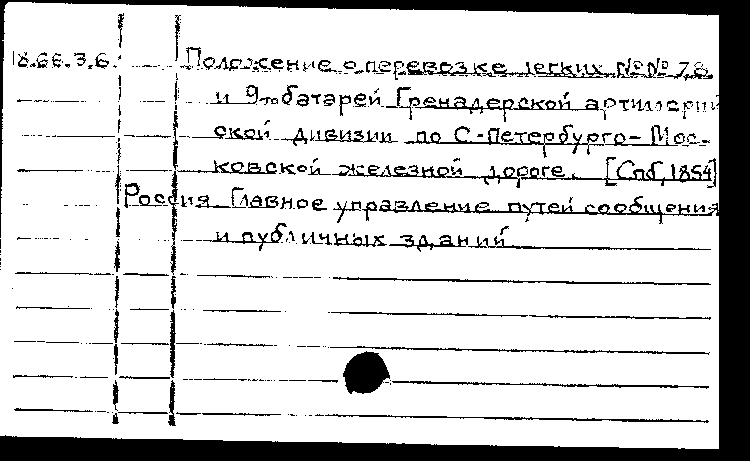 18.66.3.6. Положение о перевозке легких №№ 7,8
и 9то батарей Гренадерской артиллерий
ской дивизии по С.-Петербурго-Мос-
ковской железной дороге. [Спб, 1854]
Россия Главное управление путей сообщения
и публичных зданий